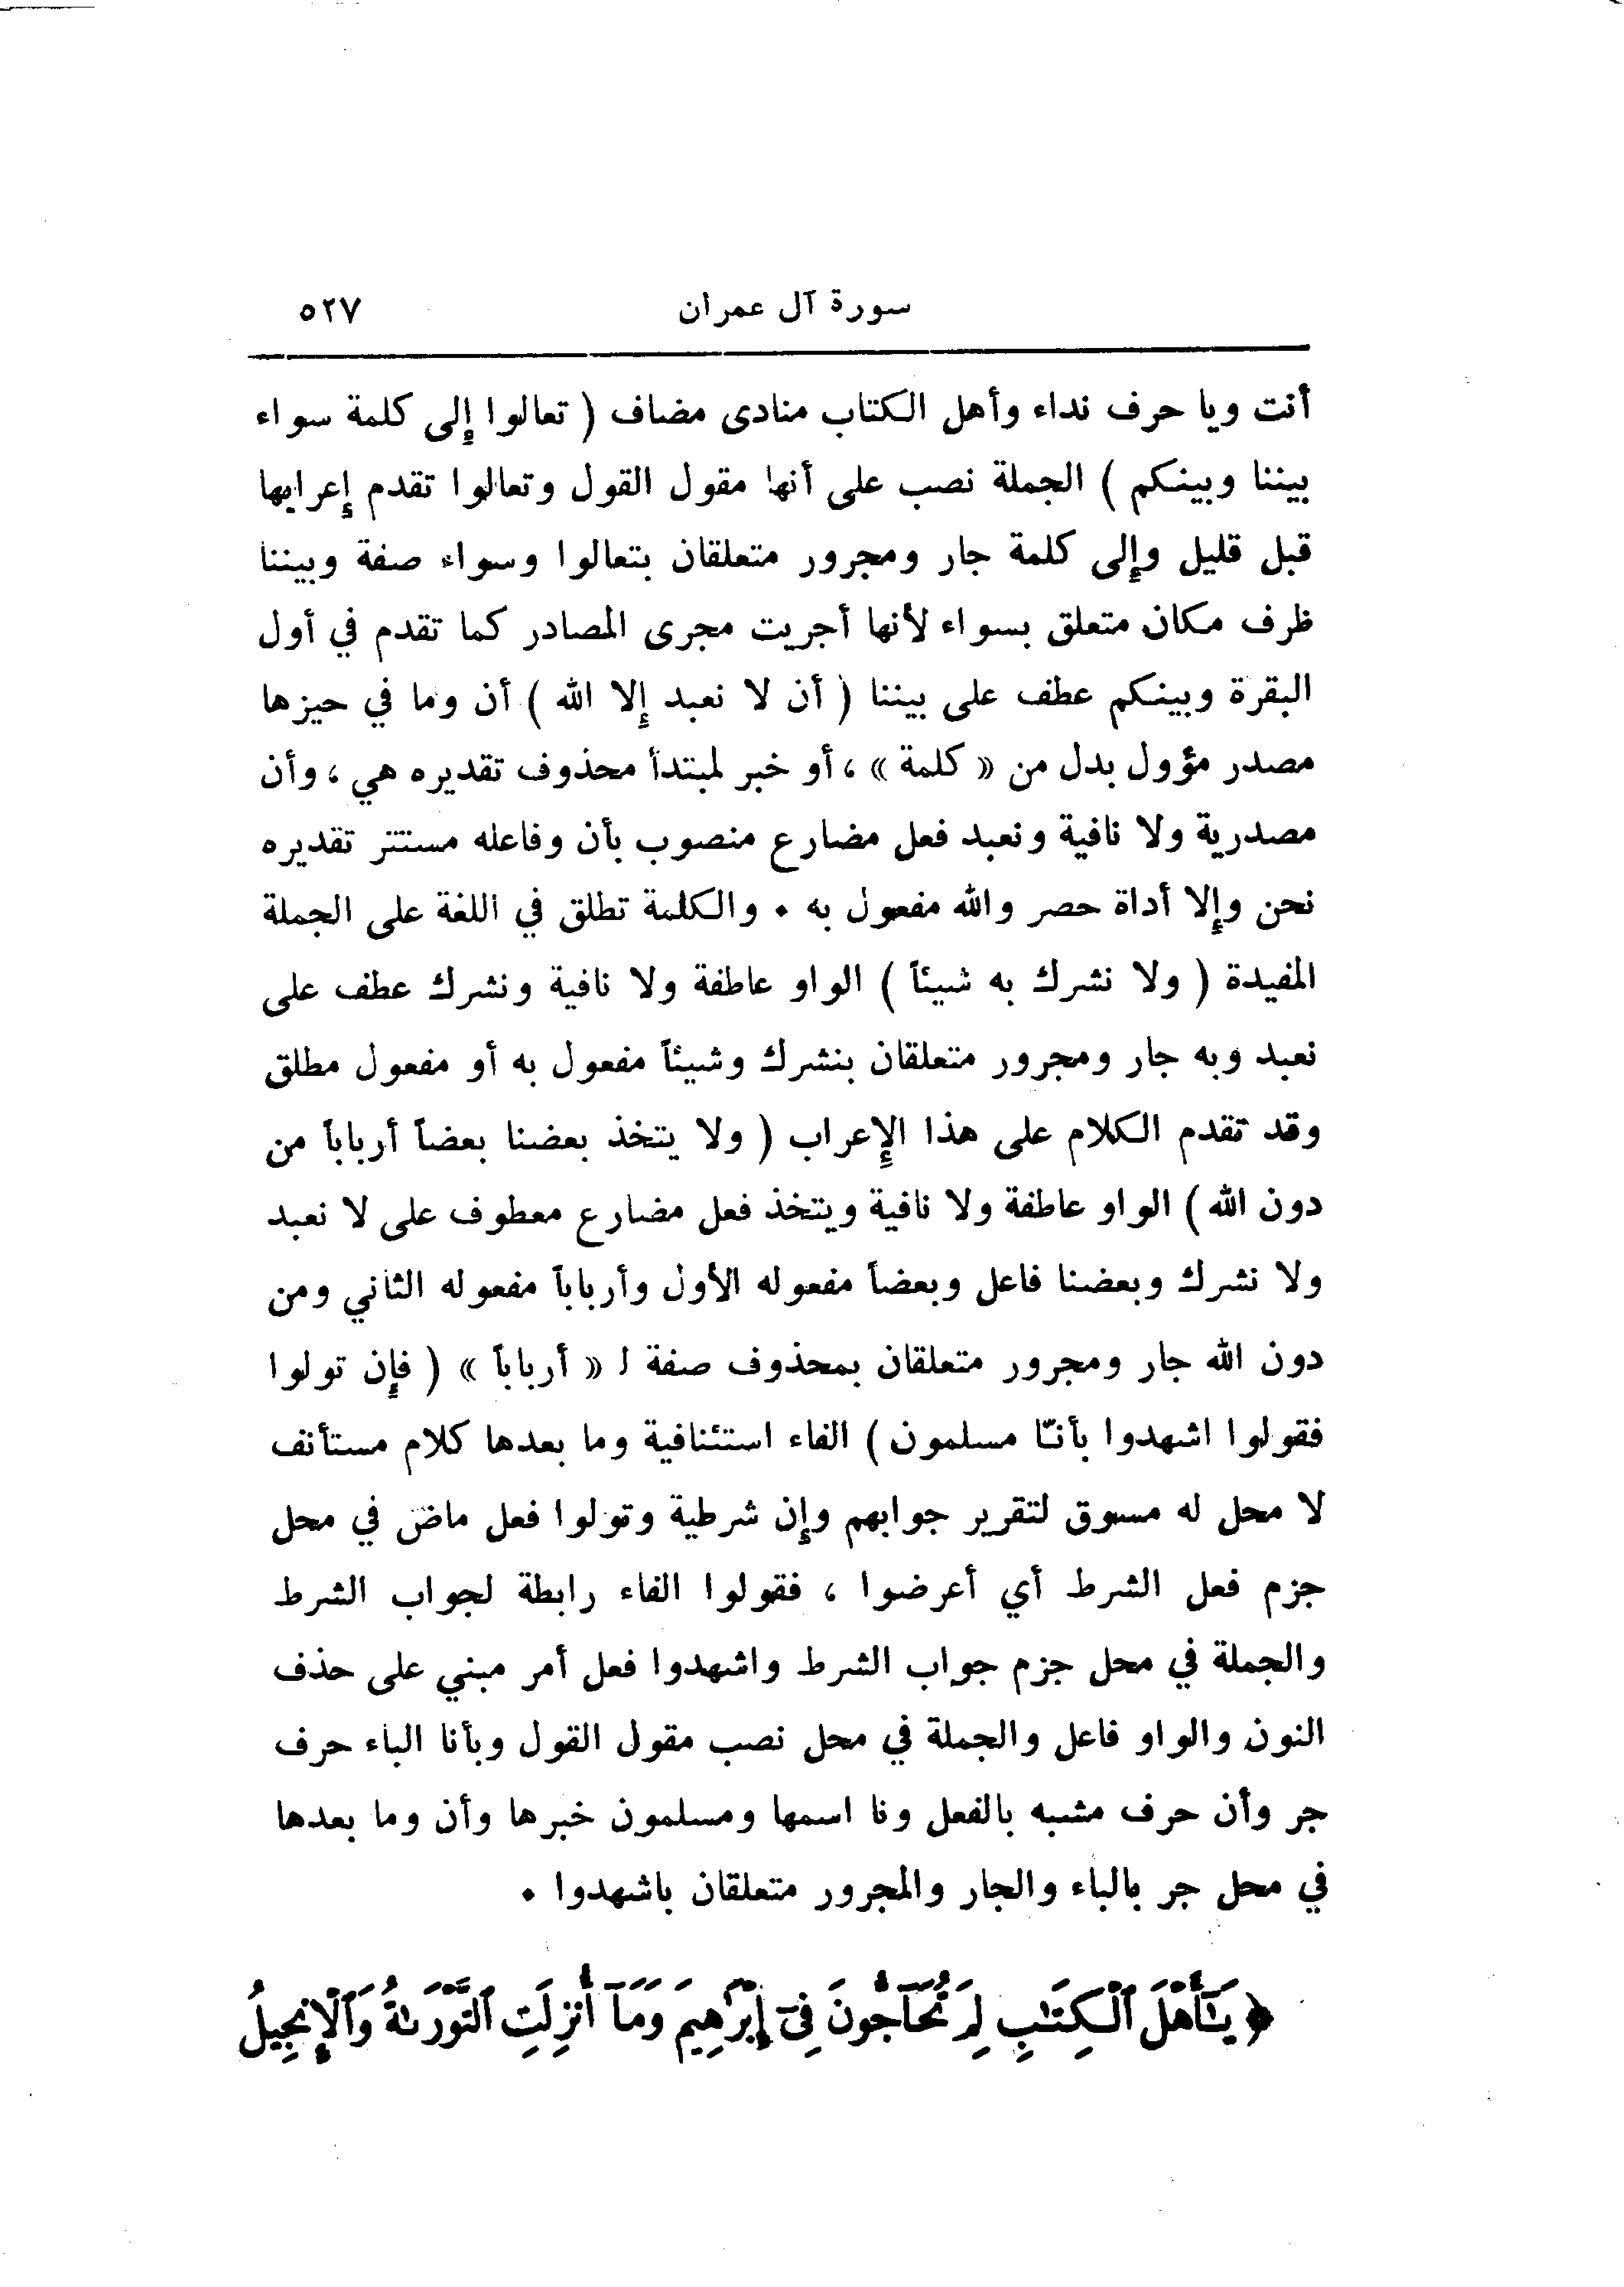 سورة آل عمران ٥٢٧
أنت ويا حرف نداء وأهل الكتاب منادى مضاف ( تعالوا إلى كلمة سواء
بيننا وبينكم ) الجملة نصب على أنها مقول القول وتعالوا تقدم إعرابها
قبل قليل وإلى كلمة جار ومجرور متعلقان بتعالوا وسواء صفة وبيننا
ظرف مكان متعلق بسواء لأنها أجريت مجرى المصادر كما تقدم في أول
البقرة وبينكم عطف على بيننا ( أن لا نعبد إلا الله ) أن وما في حيزها
مصدر مؤول بدل من « كلمة » ، أو خبر لمبتدأ محذوف تقديره هي ، وأن
مصدرية ولا نافية ونعبد فعل مضارع منصوب بأن وفاعله مستتر تقديره
نحن وإلا أداة حصر والله مفعول به . والكلمة تطلق في اللغة على الجملة
المفيدة ( ولا نشرك به شيئاً ) الواو عاطفة ولا نافية ونشرك عطف على
نعبد وبه جار ومجرور متعلقان بنشرك وشيئاً مفعول به أو مفعول مطلق
وقد تقدم الكلام على هذا الإعراب ( ولا يتخذ بعضنا بعضاً أرباباً من
دون الله ) الواو عاطفة ولا نافية ويتخذ فعل مضارع معطوف على لا نعبد
ولا نشرك وبعضنا فاعل وبعضاً مفعوله الأول وأرباباً مفعوله الثاني ومن
دون الله جار ومجرور متعلقان بمحذوف صفة لـ « أرباباً » ( فإن تولوا
فقولوا اشهدوا بأنّا مسلمون ) الفاء استئنافية وما بعدها كلام مستأنف
لا محل له مسوق لتقرير جوابهم وإن شرطية وتولوا فعل ماض في محل
جزم فعل الشرط أي أعرضوا ، فقولوا الفاء رابطة لجواب الشرط
والجملة في محل جزم جواب الشرط واشهدوا فعل أمر مبني على حذف
النون والواو فاعل والجملة في محل نصب مقول القول وبأنا الباء حرف
جر وأن حرف مشبه بالفعل ونا اسمها ومسلمون خبرها وأن وما بعدها
في محل جر بالباء والجار والمجرور متعلقان باشهدوا .
﴿ يَـٰٓأَهْلَ ٱلْكِتَـٰبِ لِمَ تُحَآجُّونَ فِىٓ إِبْرَٰهِيمَ وَمَآ أُنزِلَتِ ٱلتَّوْرَىٰةُ وَٱلْإِنجِيلُ